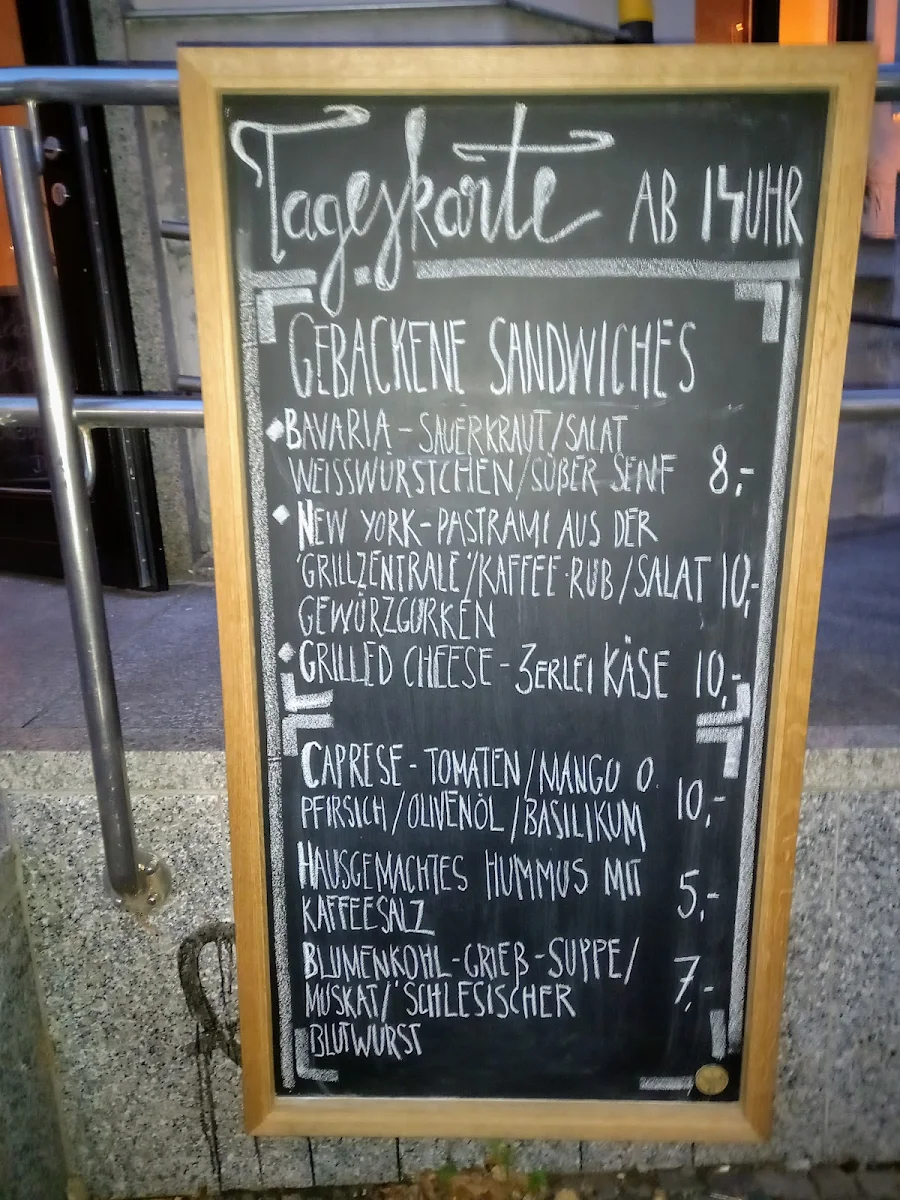 Tageskarte AB 14 UHR
GEBACKENE SANDWICHES
BAVARIA - SAUERKRAUT/SALAT
WEISSWÜRSTCHEN/SÜßER SENF 8,-
NEW YORK - PASTRAMI AUS DER
'GRILLZENTRALE'/KAFFEE-RUB/SALAT 10,-
GEWÜRZGURKEN
GRILLED CHEESE - 3ERLEI KÄSE 10,-
CAPRESE - TOMATEN/MANGO O.
PFIRSICH/OLIVENÖL/BASILIKUM 10,-
HAUSGEMACHTES HUMMUS MIT
KAFFEESALZ 5,-
BLUMENKOHL-GRIEß-SUPPE/
MUSKAT/SCHLESISCHER 7,-
BLUTWURST